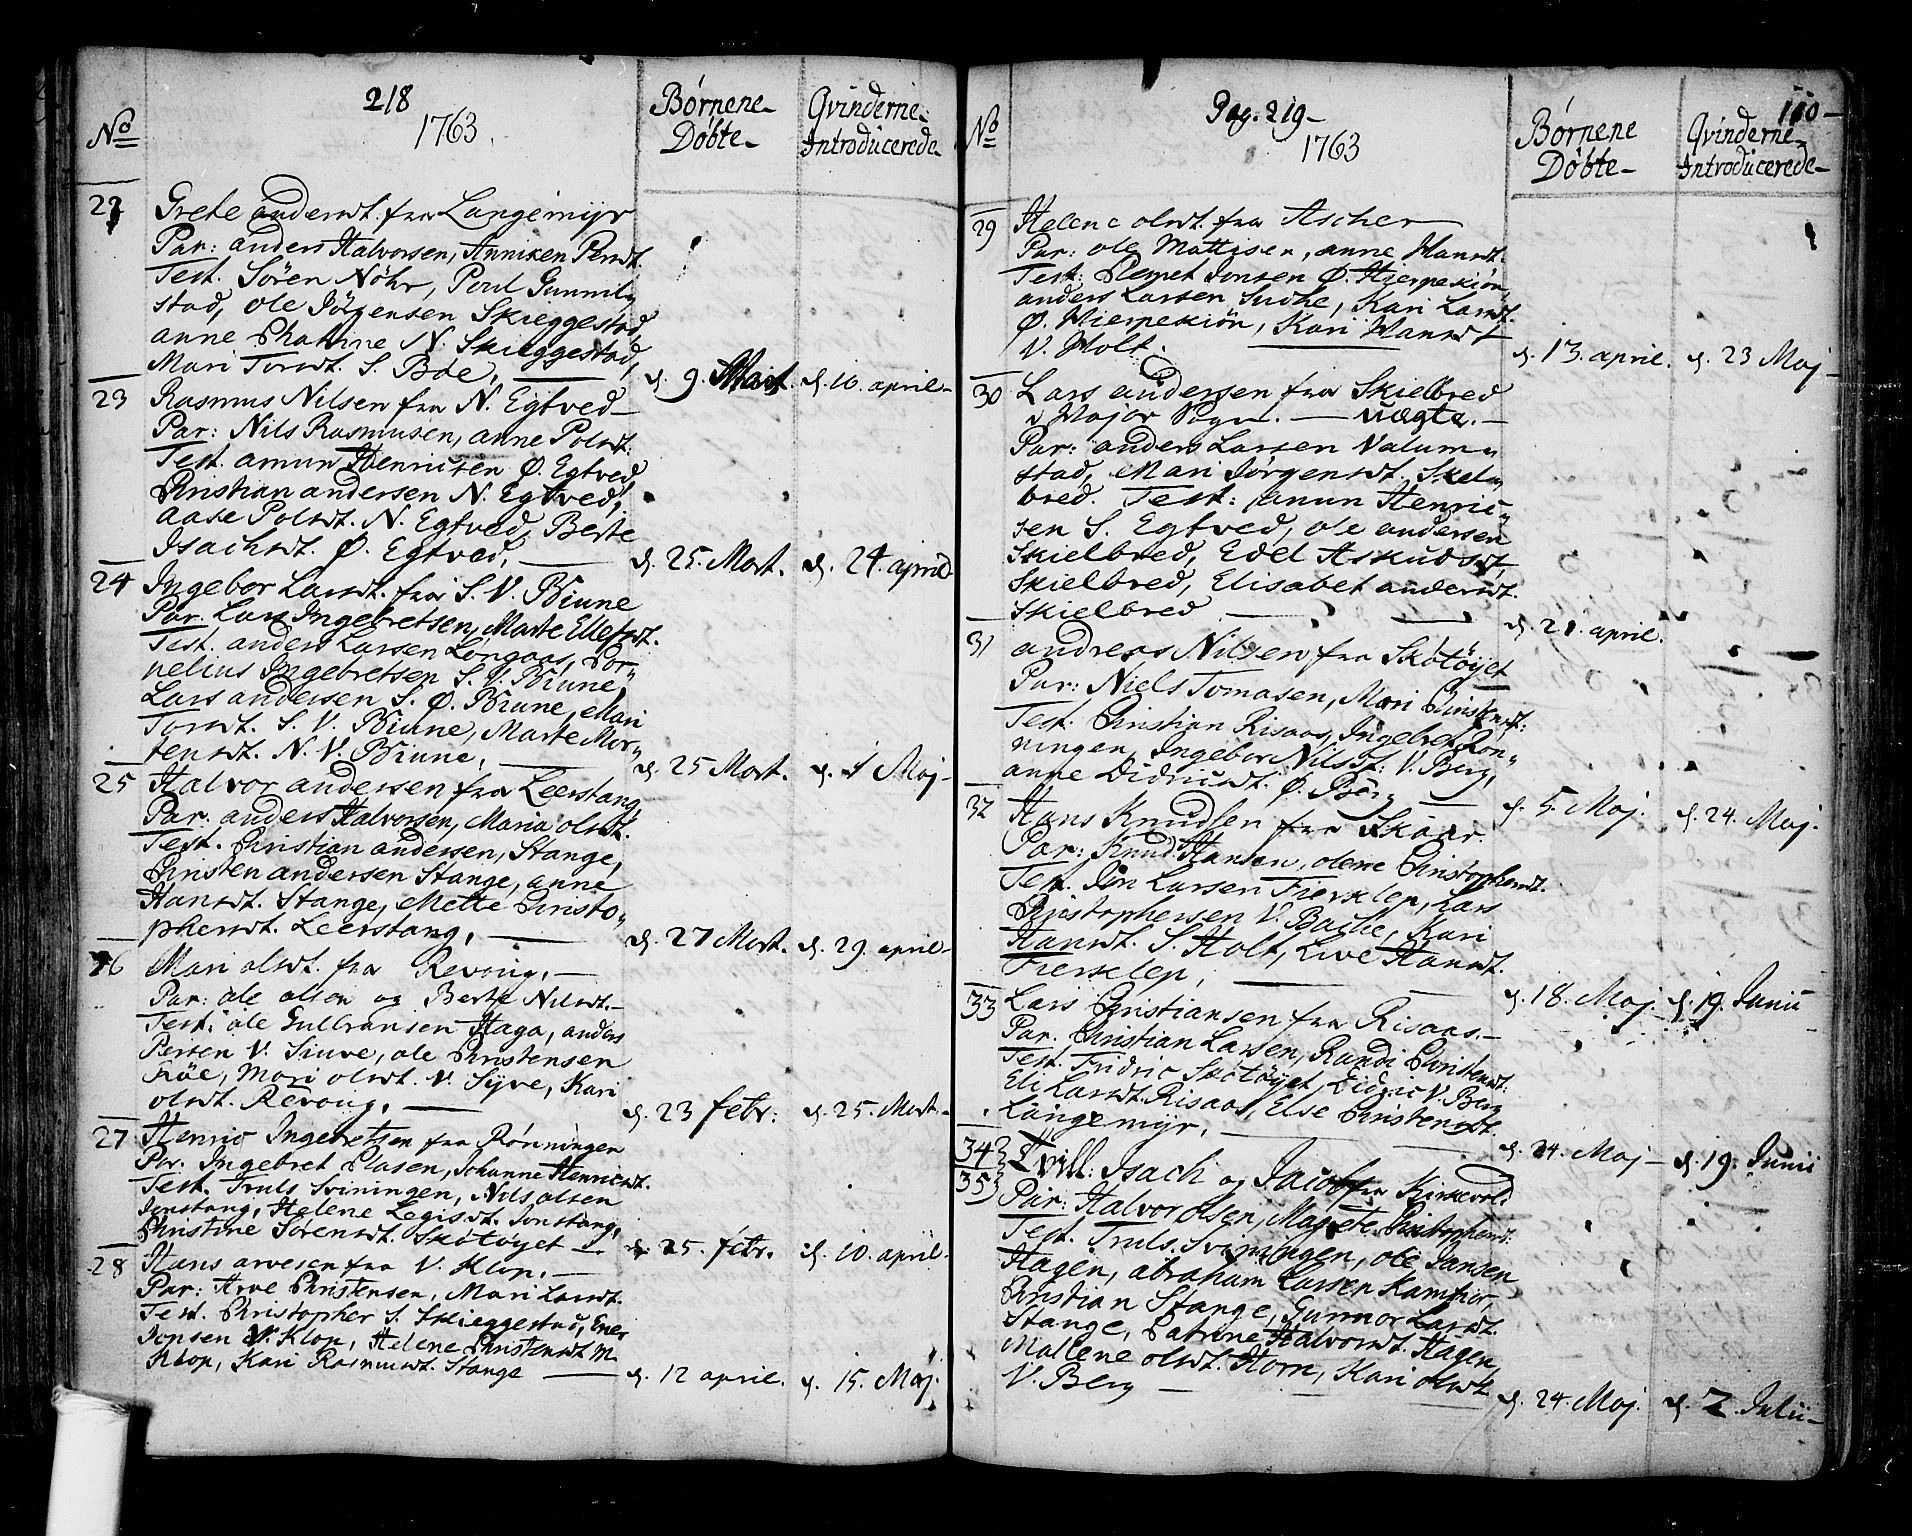 218
1763
No
Børnene
Døbte
Qvinderne
Introducerede
22
Grete andersdt. fra Langemÿr
Par: anders Halvorsen, Anniken Persdt.
Test. Sören Nöhr, Poul Gunnil„
stad, ole Jörgensen Skieggestad,
anne Chatrine N. Skieggestad,
Mari Torsdt. S. Böe,
d. 9. Mart. d. 10. april
23
Rasmus Nilsen fra N. Egtved
Par: Nils Rasmusen, anne Polsdt.
Test. amun Henricsen Ø. Egtved,
Christian andersen N. Egtved,
aase Polsdt. N. Egtved, Berte
Isachsdt. Ø. Egtved.
d. 25. Mart. d. 24. april
24
Ingebor Larsdt. fra S. V. Biune
Par. Lars Ingebretsen, Marte Ellefsdt.
Test. anders Larsen Löngaas, Cor„
nelius Ingebretsen S. V. Biune,
Lars andersen S. Ø. Biune, Mari
Torsdt. S. V. Biune, Marte Mor„
tensdt. N. V. Biune.
d. 25 Mart. d. 1 Maj
25
Halvor andersen fra Leerstang,
Par. anders Halvorsen, Maria olsdt.
Test. Christian andersen, Stange,
Christen andersen Stange, anne
Hansdt. Stange, Mette Christo„
phersdt. Leerstang,
d. 27 Mart. d. 29. april
26
Mari olsdt. fra Revoug.
Par: ole olsen og Berte Nilsdt.
Test: ole Gulbransen Haga, anders
Persen V. Siuve, ole Christensen
Röe, Mari olsdt. V. Syve, Kari
olsdt. Revoug.
d. 23 febr: d. 25. Mart.
27
Henric Ingebretsen fra Rönningen
Par. Ingebret Plasen, Johanne Henricsdt.
Test. Truls Sviningen, Nils olsen
Jonstang, Helene Legisdt. Jonstang,
Christine Sörensdt. Skötöyet
d. 25. febr. d. 10. april
28
Hans arvesen fra V. Klop.
Par: Arve Christensen, Mari Larsdt.
Test. Christopher S. Skieggestad, Ener
Jonsen V. Klop, Helene Christensdt. M.
Klop, Kari Rasmusdt. Stange
d. 12 april. d. 15. Maj.
Pag. 219
110
1763
No
Børnene
Døbte
Qvinderne
Introducerede
29
Helene olsdt. fra Ascher
Par: ole Mattisen, anne Hansdt.
Test: Clemet Jonsen Ø. Hierpekiön,
anders Larsen Suche, Kari Larsdt.
Ø. Hierpekiön, Kari Hansdt
V. Holt.
d. 13. april. d. 23 Maj
30
Lars andersen fra Skielbred
i Major Sogn. uægte.
Par: anders Larsen Valum„
stad, Mari Jörgensdt. Skel„
bred. Test: amun Henric„
sen S. Egtved, ole andersen
Skielbred, Edel Askudsdt.
Skielbred, Elisabet andersdt.
Skielbred
d. 21. april.
31
andreas Nilsen fra Skötöyet
Par: Niels Tomasen, Mari Christensdt:
Test: Christian Risaas, Ingebret Rön„
ningen, Ingebor Nilsdt: V. Berg,
anne Didricsdt. Ø. Berg
d. 5. Maj. d. 24. Maj.
32
Hans Knudsen fra Skaar.
Par: Knud Hansen, olene Christophersdt.
Test. Jön Larsen Fierskelep, Lars
Christophersen V. Bache, Kari
Hansdt. S. Holt, Live Hansdt.
Fierskelep,
d. 18. Maj d. 19. Junii
33
Lars Christiansen fra Risaas.
Par. Christian Larsen, Randi Christensdt:
Test. Fridric Skötöyet, Didric V. Berg
Eli Larsdt. Risaas, Else Christensdt.
Langemyr.
d. 24. Maj d. 19. Junii
34
35
Tvill. Isach og Jacob fra Kirkevold
Par: Halvor olsen, Magrete Christophersdt:
Test. Truls Sviningen, ole Jansen
Hagen, abraham Larsen Kamhier,
Christian Stange, Gunnor Larsdt.
Stange, Catrine Halvorsdt. Hagen,
Mallene olsdt. Horn, Kari olsdt
V. Berg
d. 24. Maj. d. 2. Julii